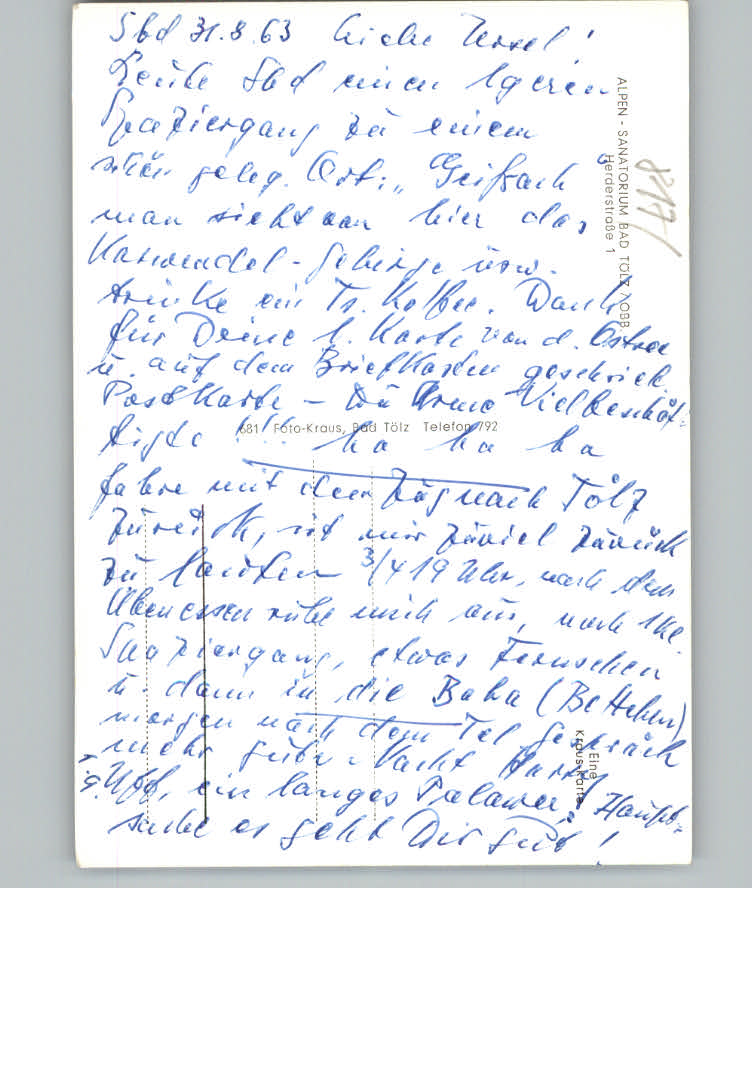 Sbd 31.8.63 Liebe Ursel!
Heute Sbd einen lgeren
Spaziergang zu einem
schön geleg. Ort: „Geißach"
man sieht von hier das
Karwendel-Gebirge usw.
trinke ein Ts. Kaffee. Dank
für Deine l. Karte von d. Ostsee
u. auf dem Briefkasten geschrieb.
Postkarte – Du Arme Vielbeschäf-
tigte !!! ha ha ha
fahre mit dem Zug nach Tölz
zurück, ist mir zuviel zurück
zu laufen 3/4 19 Uhr, nach dem
Abendessen ruhe mich aus, noch kl.
Spaziergang, etwas Fernsehen
u. dann in die Baba (Bettchen)
morgen nach dem Tel gespräch
mehr gute Nacht
Uff, ein langes Palaver! Haupt-
sache es geht Dir gut!
ALPEN - SANATORIUM BAD TÖLZ / OBB.
Herderstraße 1
8217
681 Foto-Kraus, Bad Tölz Telefon 792
Eine
Kraus-Karte